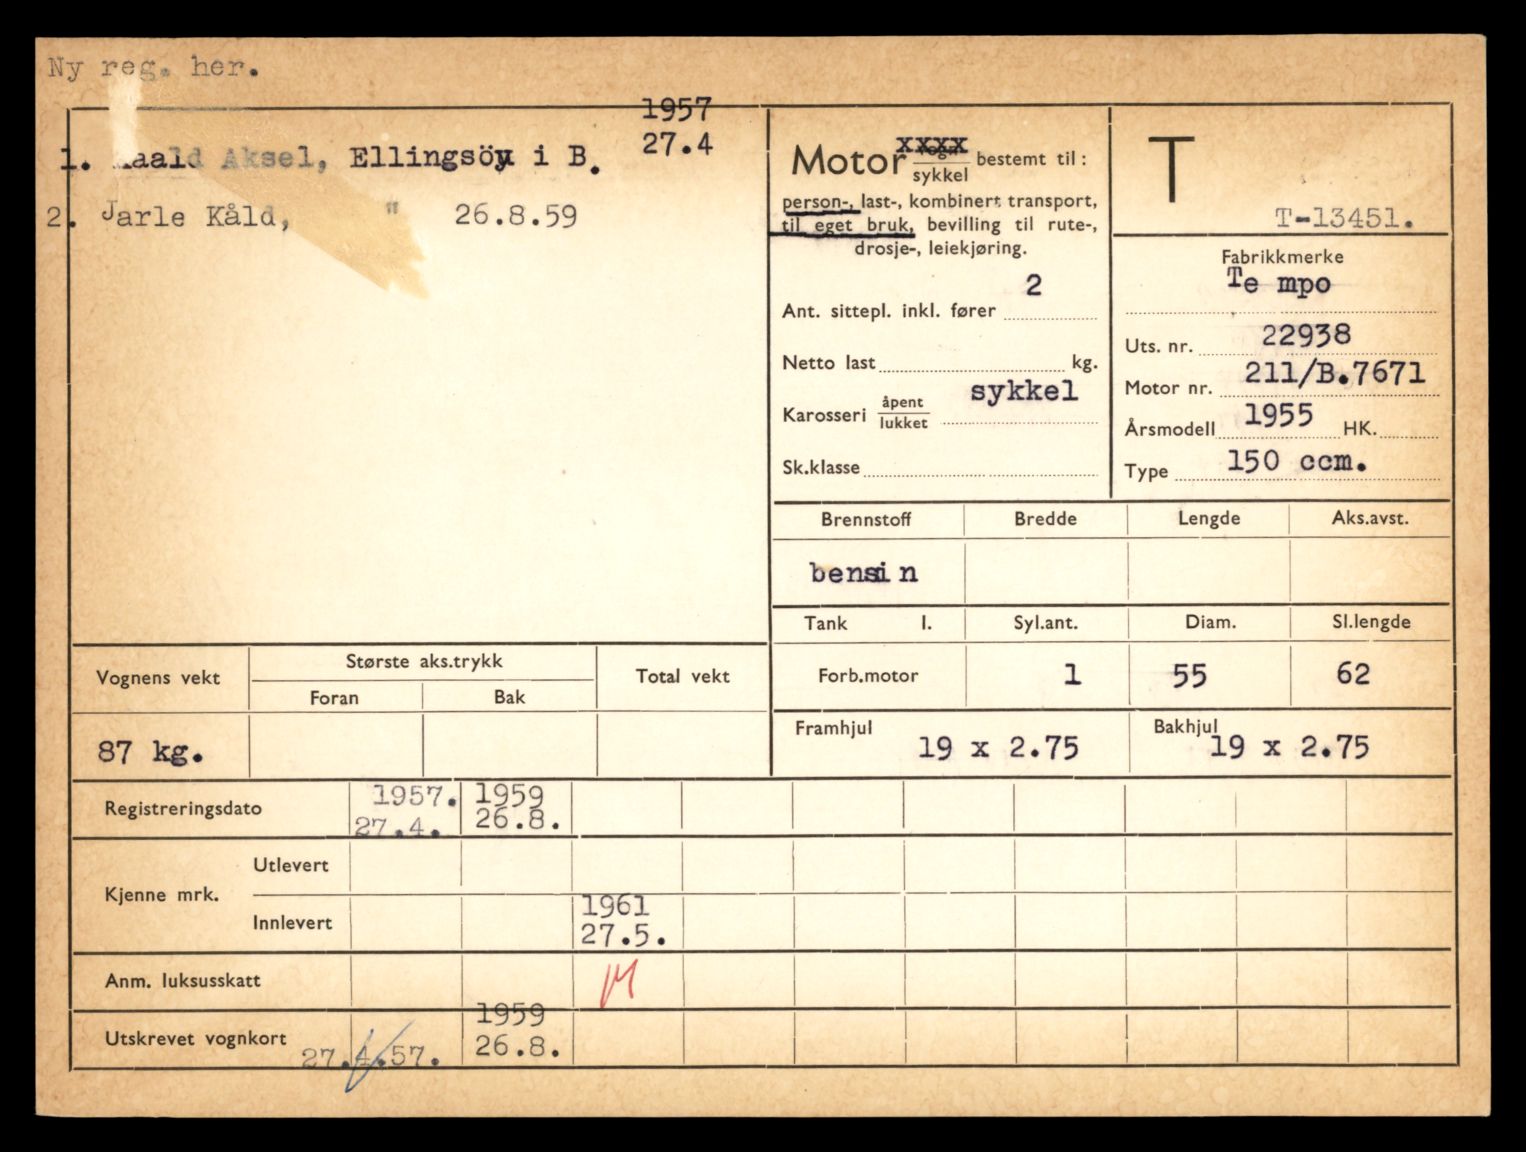 Ny reg. her.
1957
27.4
1. Kaald Aksel, Ellingsöy i B.
2. Jarle Kåld, " 26.8.59
Motor vogn xxxx bestemt til :
sykkel
person-, last-, kombinert transport,
til eget bruk, bevilling til rute-,
drosje-, leiekjøring.
Ant. sittepl. inkl. fører 2
Netto last kg.
Karosseri åpent sykkel
lukket
Sk.klasse
T
T-13451.
Fabrikkmerke
Te mpo
Uts. nr. 22938
Motor nr. 211/B.7671
Årsmodell 1955 HK.
Type 150 ccm.
Brennstoff Bredde Lengde Aks.avst.
bensin
Tank l. Syl.ant. Diam. Sl.lengde
Forb.motor 1 55 62
Framhjul 19 x 2.75 Bakhjul 19 x 2.75
Vognens vekt Største aks.trykk Total vekt
Foran Bak
87 kg.
Registreringsdato 1957. 1959
27.4. 26.8.
Kjenne mrk. Utlevert
Innlevert 1961
27.5.
Anm. luksusskatt
Utskrevet vognkort 27.4.57. 1959
26.8.